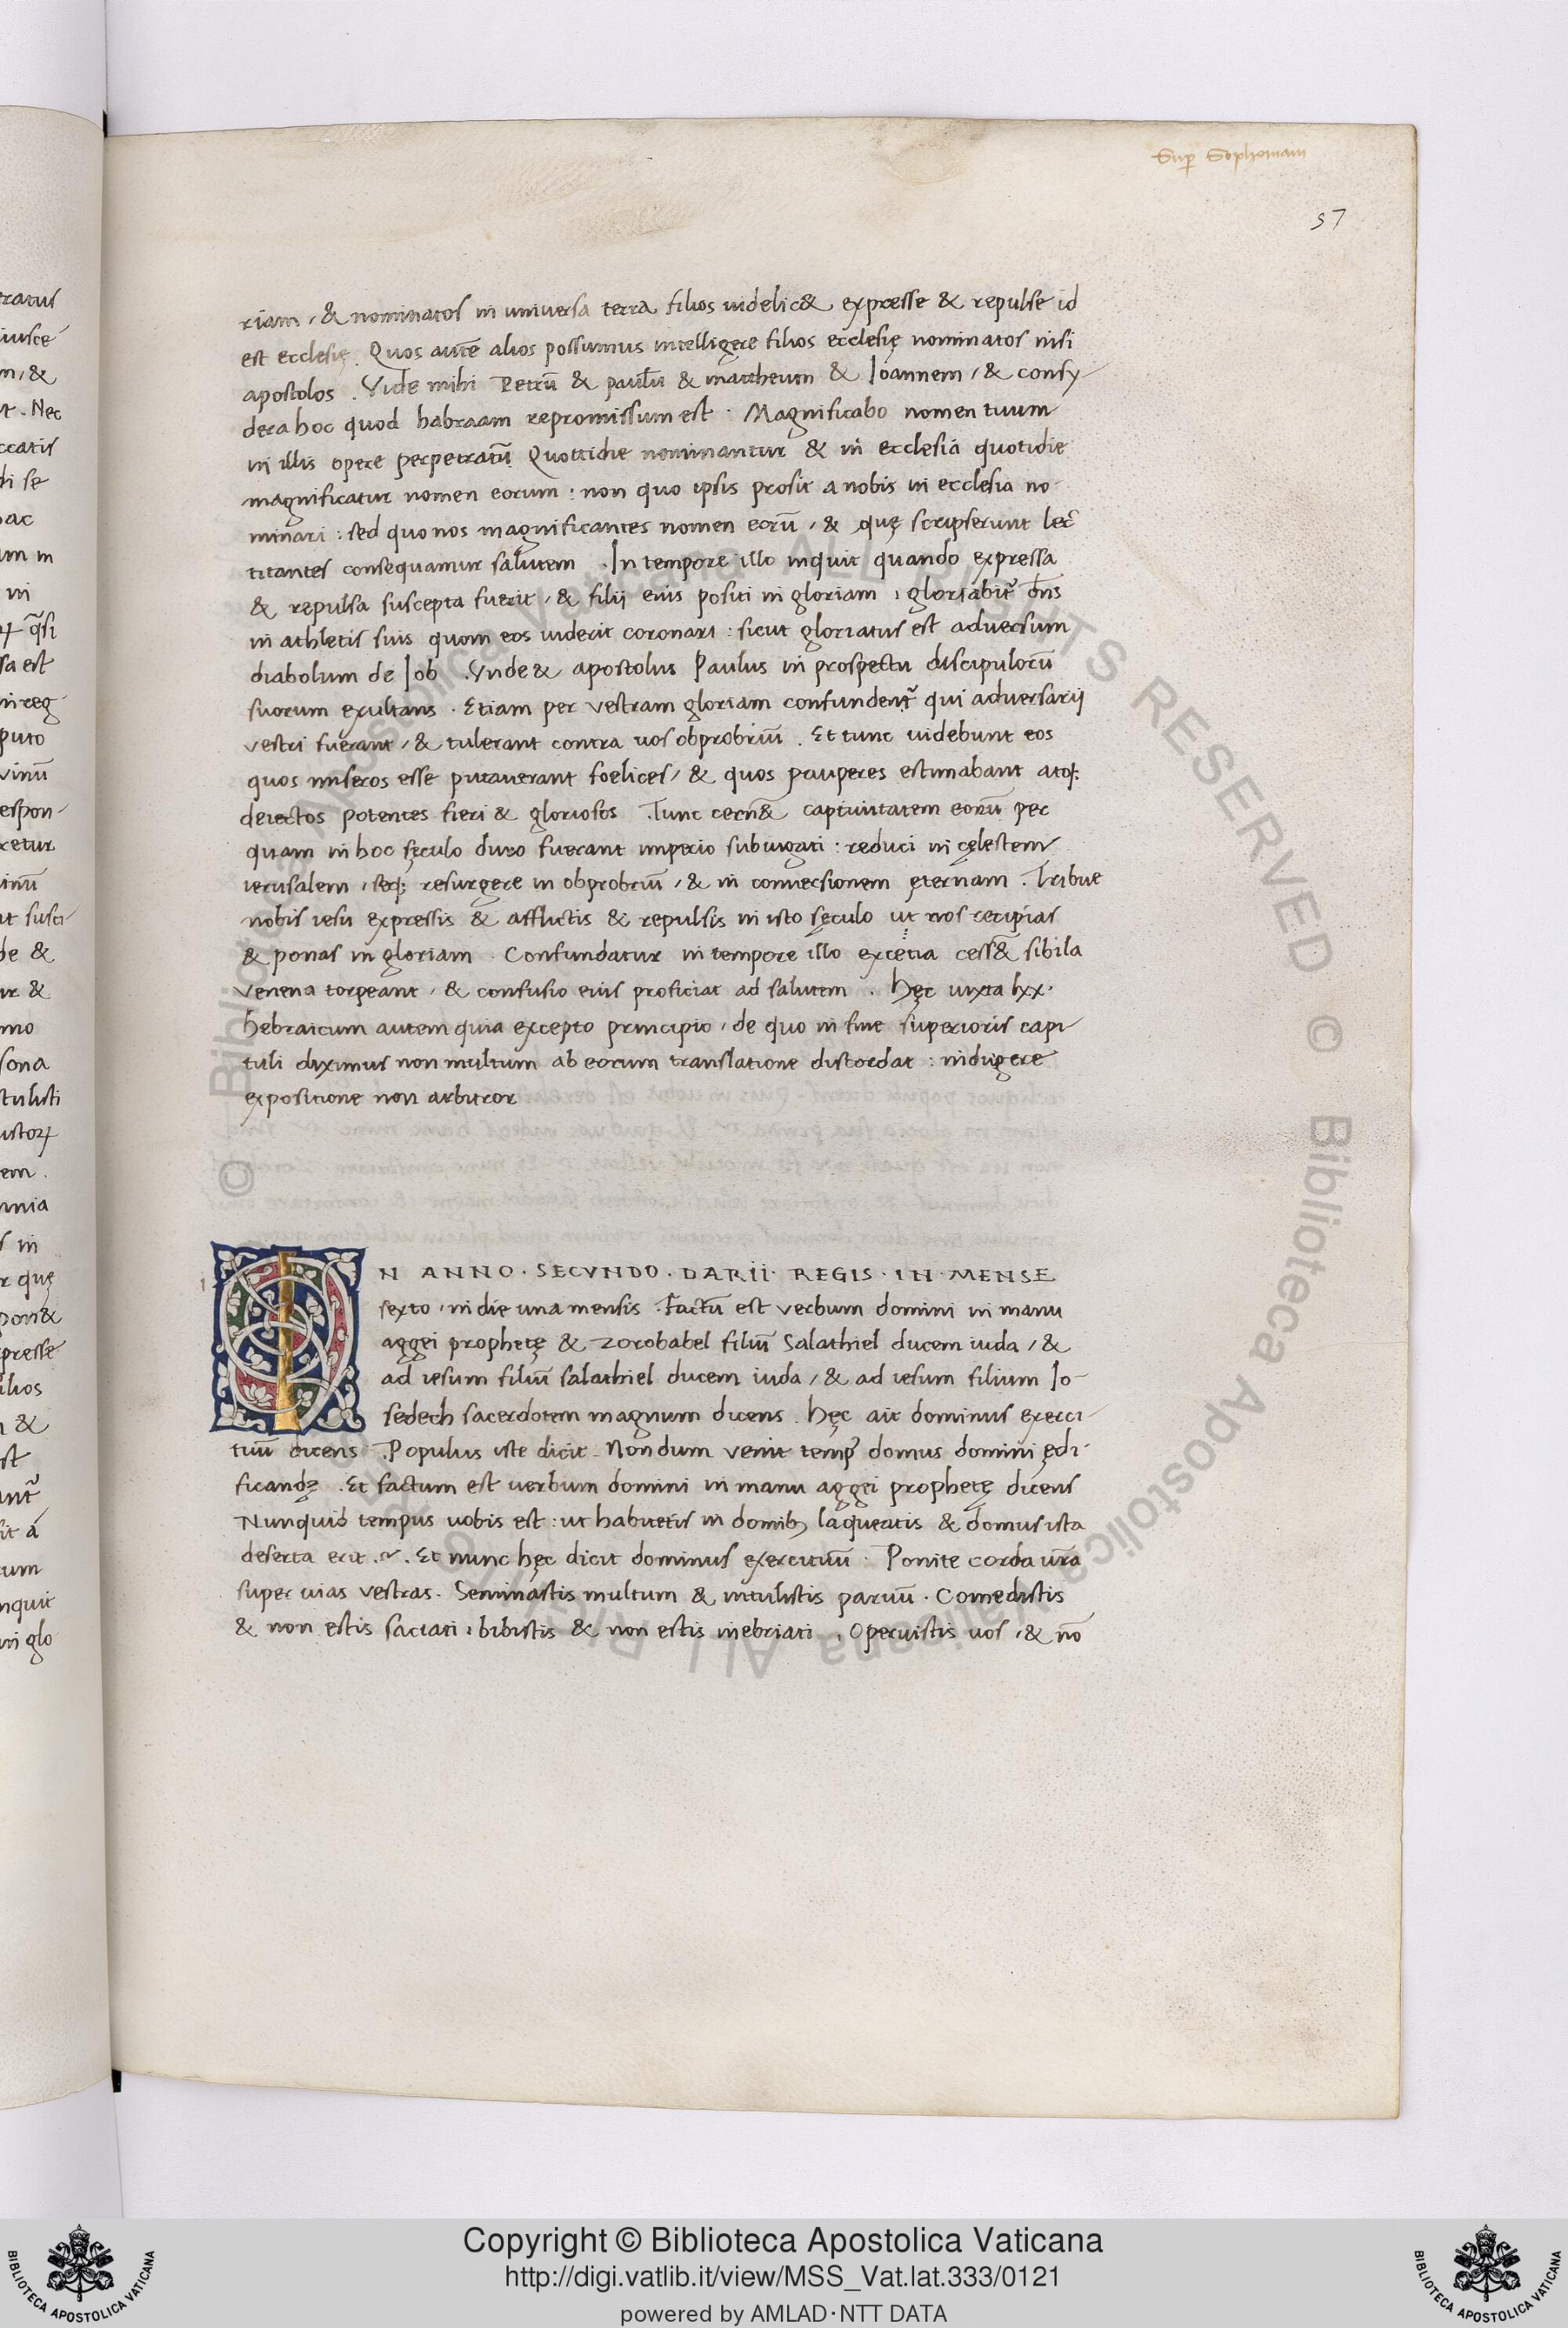 Sup Sophoniam
57
riam, & nominatos in universa terra filios videlic& expresse & repulse id
est ecclesię. Quos autē alios possumus intelligere filios ecclesię nominatos nisi
apostolos. Vide mihi Petrū & paulū & mattheum & Ioannem, & consy-
dera hoc quod habraam repromissum est. Magnificabo nomen tuum
in illis opere perpetratū. Quottidie nominantur & in ecclesia quotidie
magnificatur nomen eorum: non quo ipsis prosit a nobis in ecclesia no-
minari: sed quo nos magnificantes nomen eorū, & quę scripserunt lec-
titantes consequamur salutem. In tempore illo inquit quando expressa
& repulsa suscepta fuerit, & filii eius positi in gloriam, gloriabit̃ dn̄s
in athletis suis quom eos viderit coronari: sicut gloriatus est adversum
diabolum de Iob. Vnde & apostolus Paulus in prospectu discipulorū
suorum exultans. Etiam per vestram gloriam confundent̃ qui adversarii
vestri fuerant, & tulerant contra vos obprobriū. Et tunc videbunt eos
quos miseros esse putaverant foelices, & quos pauperes estimabant atq;
deiectos potentes fieri & gloriosos. Tunc cern& captivitatem eorū per
quam in hoc sęculo duro fuerant imperio subiugati: reduci in cęlestem
ierusalem, seq; resurgere in obprobriū, & in conversionem ęternam. Tribue
nobis iesu expressis & afflictis & repulsis in isto sęculo ut nos recipias
& ponas in gloriam. Confundatur in tempore illo excetia cess& sibila
venena torpeant, & confusio eius proficiat ad salutem. Hęc iuxta lxx.
hebraicum autem quia excepto principio, de quo in fine superioris capi
tuli diximus non multum ab eorum translatione discordat: indigere
expositione non arbitror
IN ANNO · SECVNDO · DARII · REGIS · IN · MENSE
sexto, in die una mensis. Factū est verbum domini in manu
aggei prophetę & zorobabel filiū Salathiel ducem iuda, &
ad iesum filiū salathiel ducem iuda, & ad iesum filium Io-
sedech sacerdotem magnum dicens. Hęc ait dominus exerci-
tuū dicens. Populus iste dicit. Nondum venit temp⁹ domus domini ędi-
ficandę. Et factum est verbum domini in manu aggei prophetę dicens
Nunquid tempus vobis est: ut habitetis in domib; laqueatis & domus ista
deserta erit. Et nunc hęc dicit dominus exercituū. Ponite corda vr̄a
super vias vestras. Seminastis multum & intulistis parvū. Comedistis
& non estis saciati, bibistis & non estis inebriati, Operuistis vos, & nō
© Biblioteca Apostolica Vaticana ALL RIGHTS RESERVED © Biblioteca Apostolica Vaticana ALL RIGHTS RESERVED
Copyright © Biblioteca Apostolica Vaticana
http://digi.vatlib.it/view/MSS_Vat.lat.333/0121
powered by AMLAD·NTT DATA
BIBLIOTECA APOSTOLICA VATICANA
BIBLIOTECA APOSTOLICA VATICANA